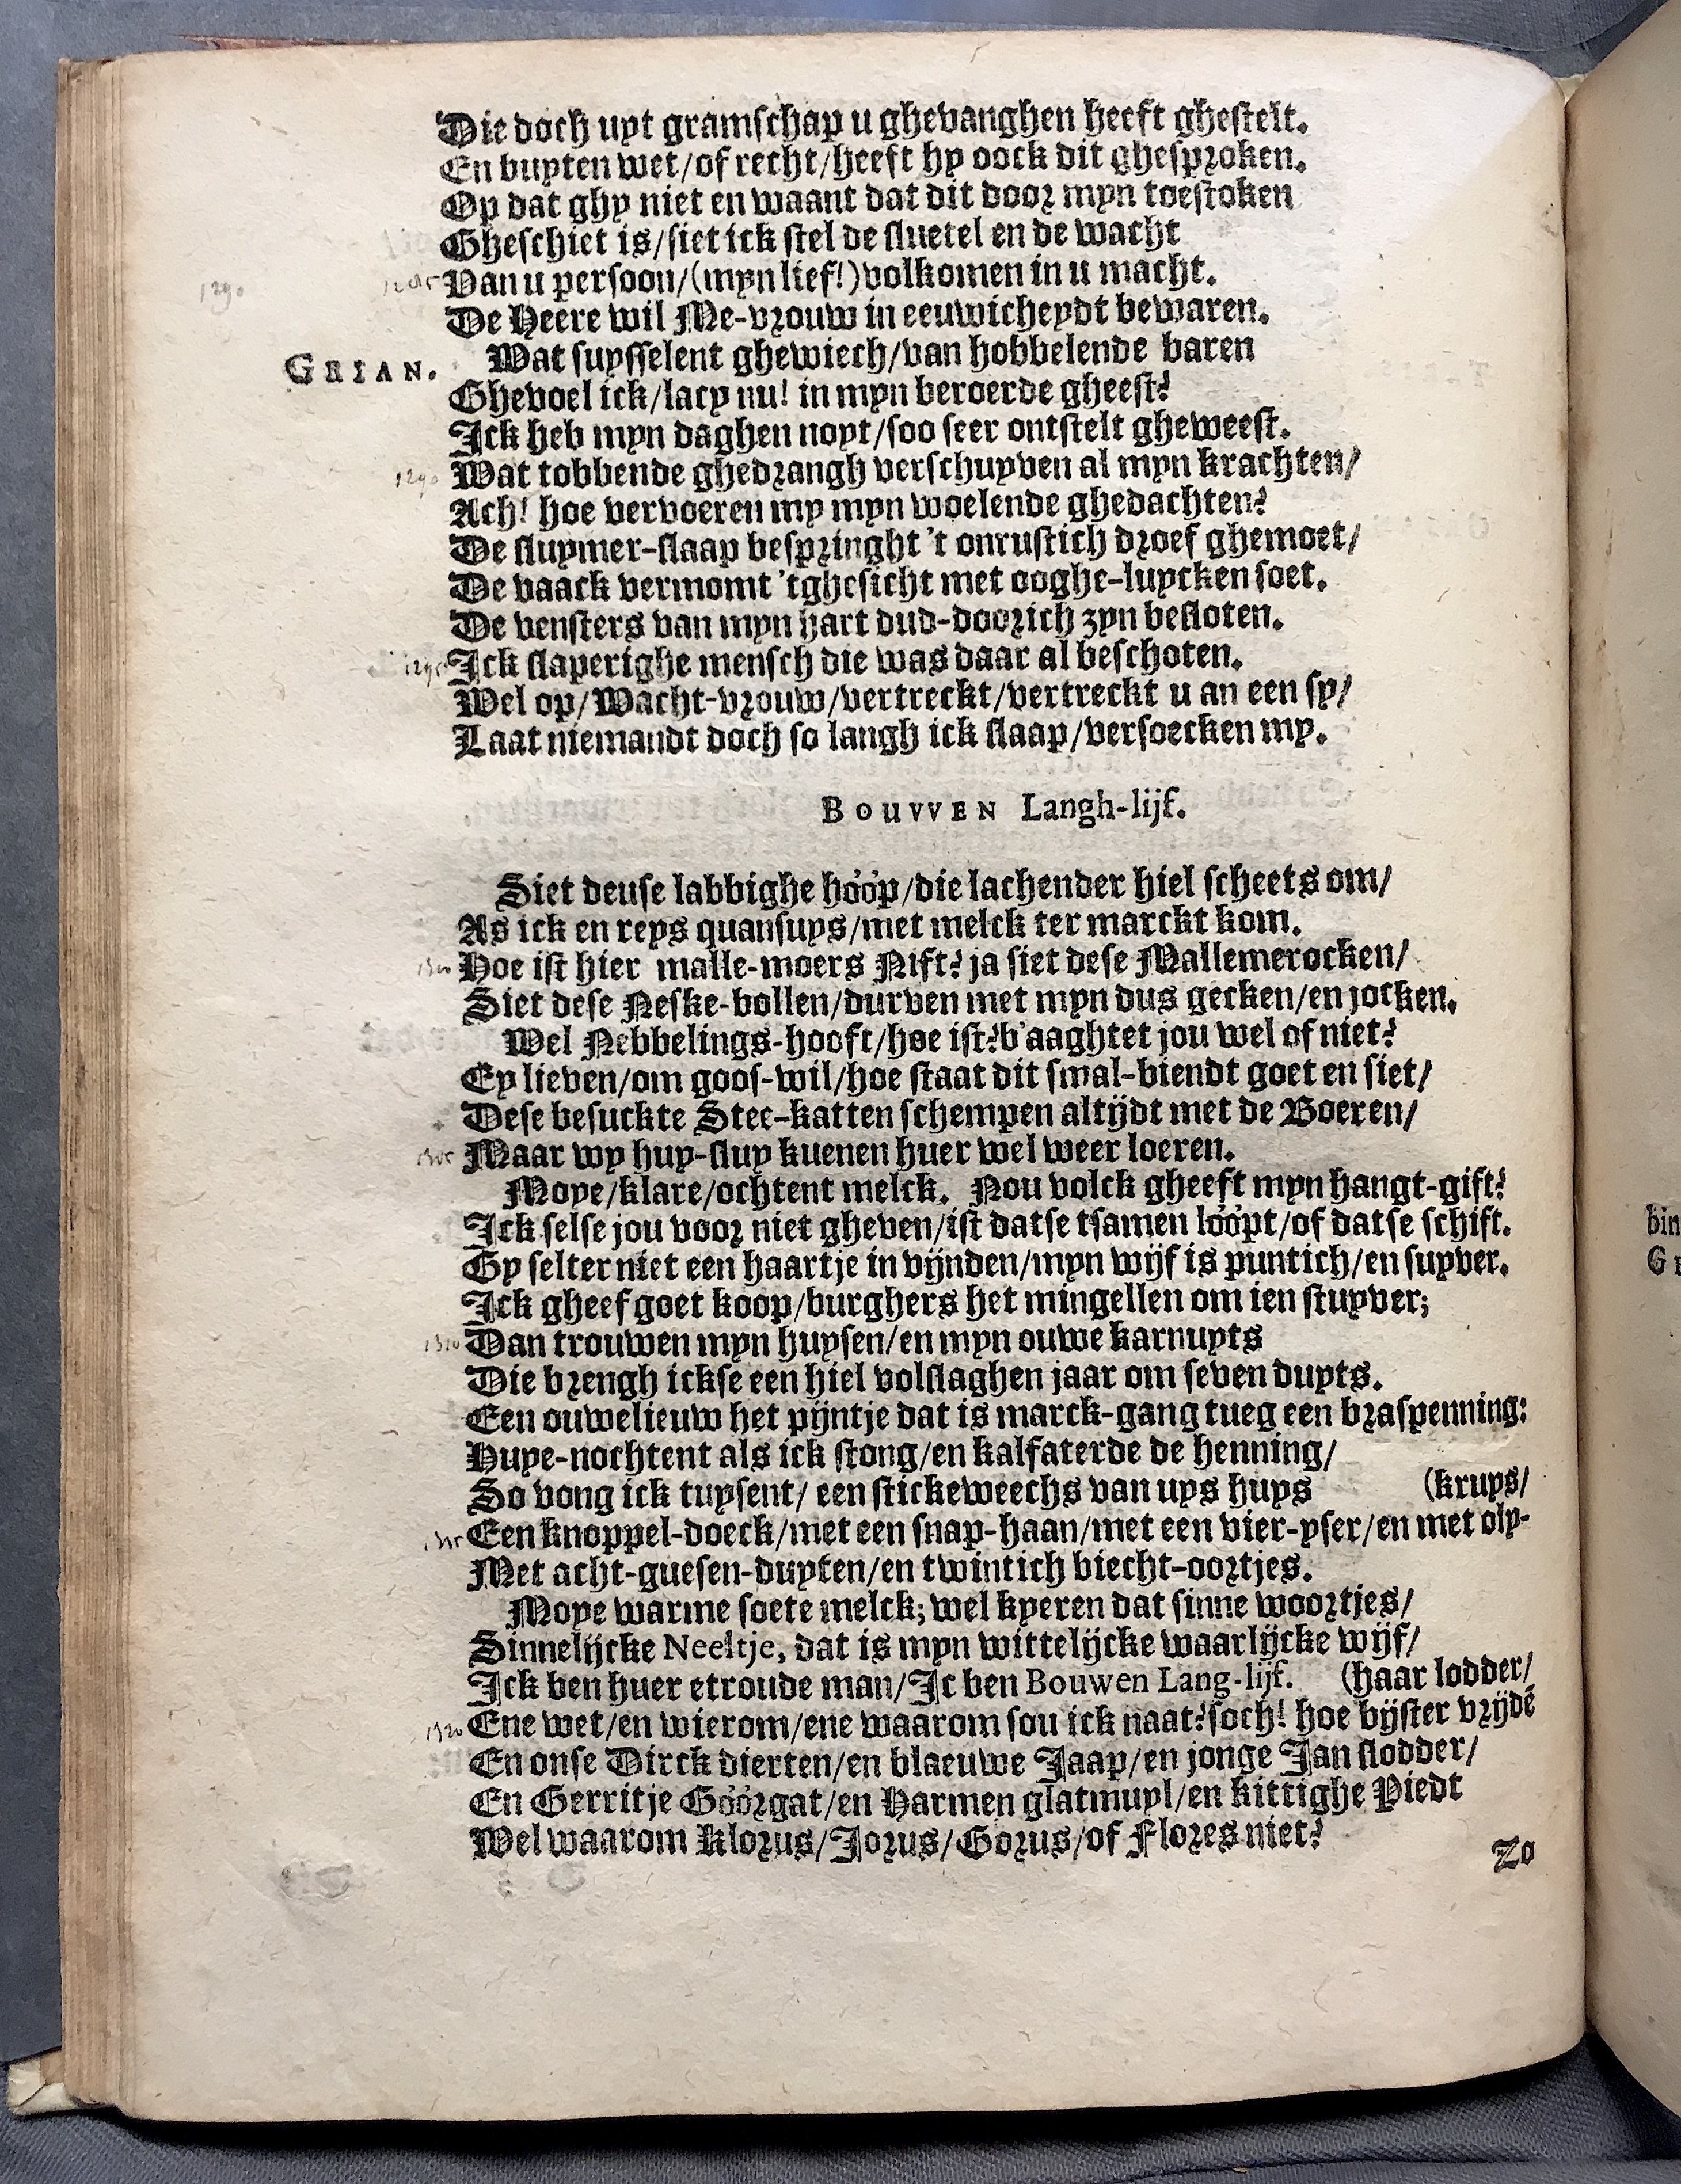 Die doch uyt gramschap u ghevanghen heeft ghestelt.
En buyten wet/of recht/heeft hy oock dit ghesproken.
Op dat ghy niet en waant dat dit door myn toestoken
Gheschiet is/siet ick stel de sluetel en de wacht
Van u persoon/(myn lief!)volkomen in u macht.
1290
De Heere wil Me-vrouw in eeuwicheydt bewaren.
GRIAN. Wat suysselent ghewiech/van hobbelende baren
Ghevoel ick/lacy nu! in myn beroerde gheest?
Ick heb myn daghen noyt/soo seer ontstelt gheweest.
1290 Wat tobbende ghedrangh verschuyven al myn krachten/
Ach! hoe vervoeren my myn woelende ghedachten?
De sluymer-slaap bespringht 't onrustich droef ghemoet/
De vaack vermomt 'tghesicht met ooghe-luycken soet.
De vensters van myn hart dud-doorich zyn besloten.
1295 Ick slaperighe mensch die was daar al beschoten.
Wel op/Wacht-vrouw/vertreckt/vertreckt u an een sy/
Laat niemandt doch so langh ick slaap/versoecken my.
BOUVVEN Langh-lijf.
Siet deuse labbighe hóóp/die lachender hiel scheets om/
As ick en reys quansuys/met melck ter marckt kom.
1300 Hoe ist hier malle-moers Nift? ja siet dese Mallemerocken/
Siet dese Neske-bollen/durven met myn dus gecken/en jocken.
Wel Nebbelings-hooft/hoe ist?b'aaghtet jou wel of niet?
Ey lieven/om goos-wil/hoe staat dit smal-biendt goet en siet/
Dese besuckte Stee-katten schempen altijdt met de Boeren/
1305 Maar wy huy-sluy kuenen huer wel weer loeren.
Moye/klare/ochtent melck. Nou volck gheeft myn hangt-gift?
Ick selse jou voor niet gheven/ist datse tsamen lóópt/of datse schift.
Gy selter niet een haartje in vijnden/myn wijf is puntich/en suyver.
Ick gheef goet koop/burghers het mingellen om ien stuyver;
1310 Dan trouwen myn huysen/en myn ouwe karnuyts
Die brengh ickse een hiel volslaghen jaar om seven duyts.
Een ouwelieuw het pijntje dat is marck-gang tueg een braspenning:
Huye-nochtent als ick stong/en kalfaterde de henning/
So vong ick tuysent/ een stickeweechs van uys huys (kruys/
1315 Een knoppel-doeck/met een snap-haan/met een vier-yser/en met oly-
Met acht-guesen-duyten/en twintich biecht-oortjes.
Moye warme soete melck; wel kyeren dat sinne woortjes/
Sinnelijcke Neeltje, dat is myn wittelijcke waarlijcke wijf/
Ick ben huer etroude man/Ic ben Bouwen Lang-lijf. (haar lodder/
1320 Ene wet/en wierom/ene waarom sou ick naat?soch! hoe bijster vrijdē
En onse Dirck dierten/en blaeuwe Jaap/en jonge Jan slodder/
En Gerritje Góórgat/en Harmen glatmuyl/en kittighe Piedt
Wel waarom Klorus/Jorus/Gorus/of Flores niet?
Zo